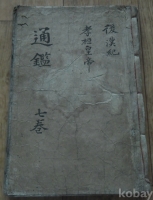 後漢紀
孝桓皇帝
通鑑
七卷
kobay